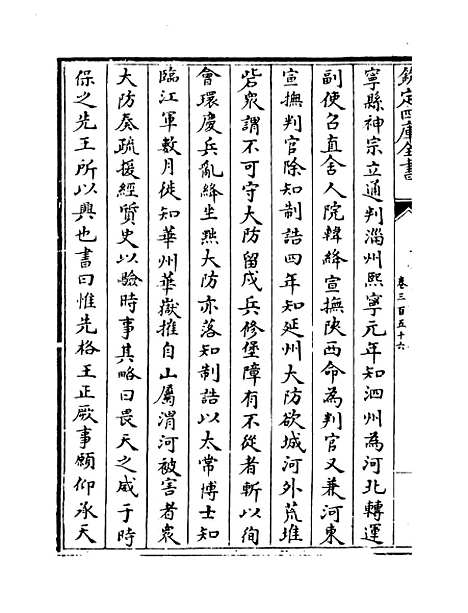 欽定四庫全書
卷三百五十六
寧縣神宗立通判淄州熙寧元年知泗州為河北轉運
副使召直舍人院韓絳宣撫陝西命為判官又兼河東
宣撫判官除知制誥四年知延州大防欲城河外荒堆
砦衆謂不可守大防留戍兵修堡障有不從者斬以徇
會環慶兵亂絳坐黜大防亦落知制誥以太常博士知
臨江軍數月徙知華州華嶽摧自山屬渭河被害者衆
大防奏疏援經質史以驗時事其略曰畏天之威于時
保之先王所以興也書曰惟先格王正厥事願仰承天